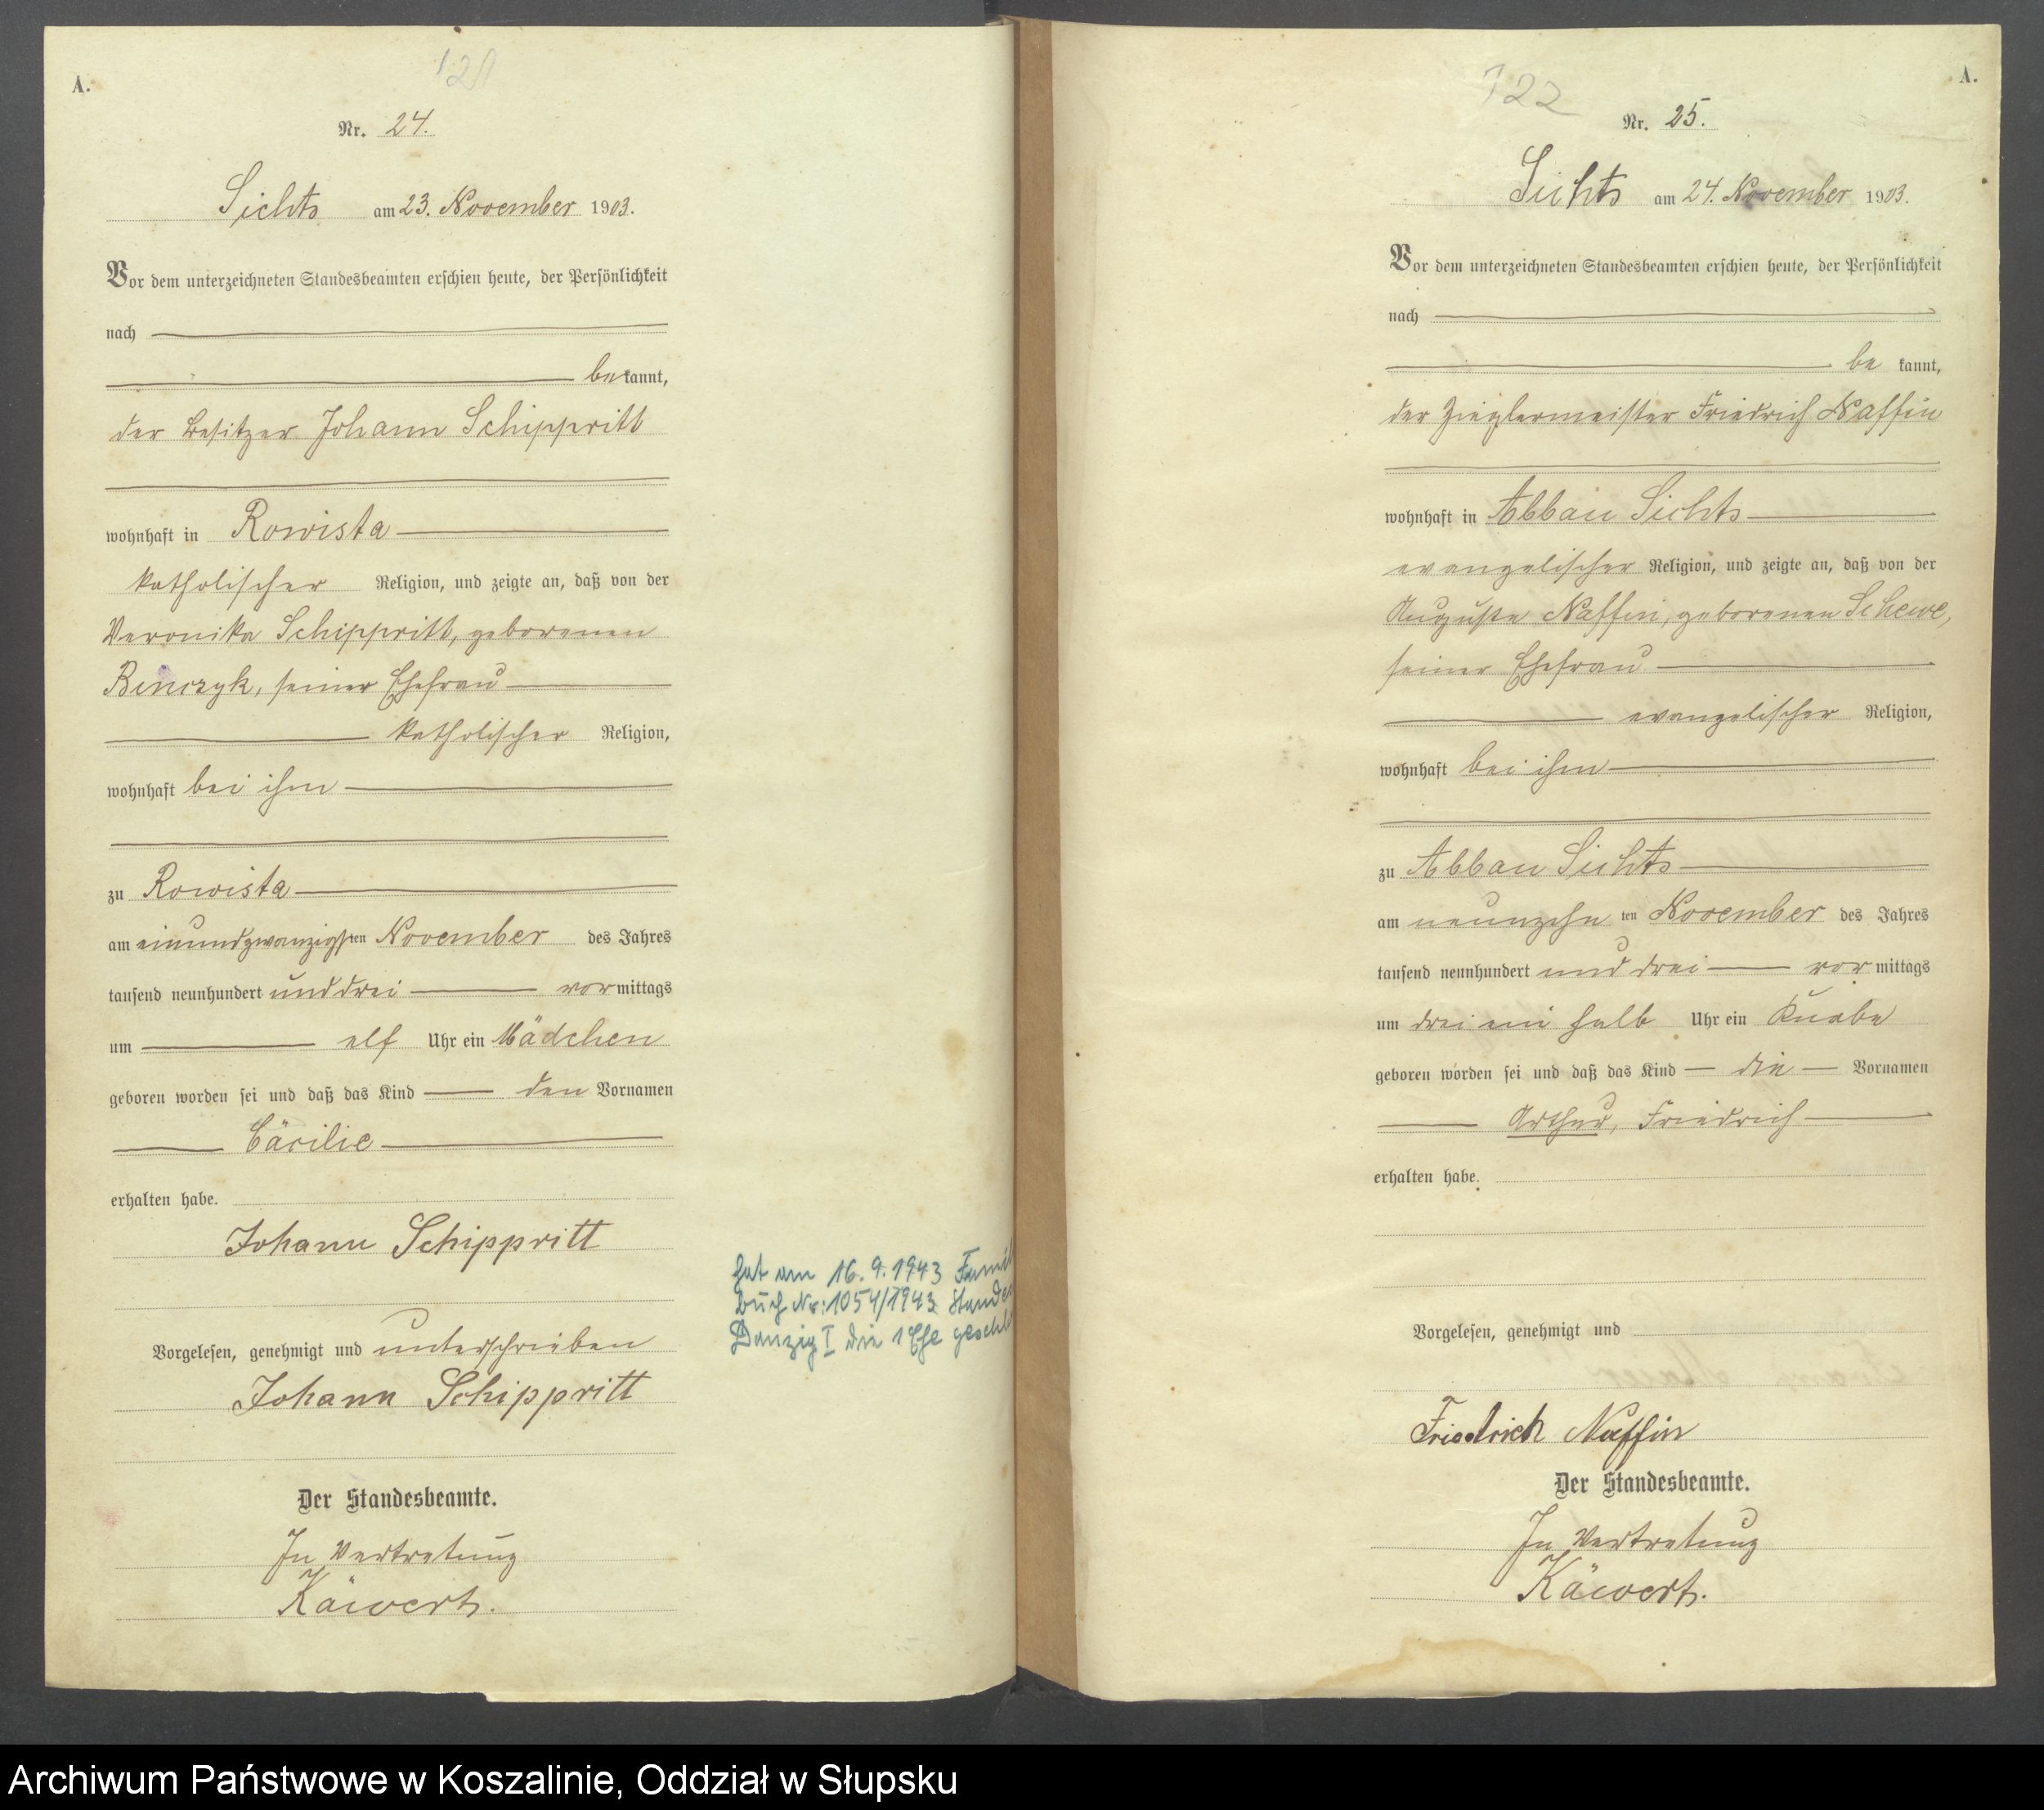 A.
121
Nr. 24.
Lichts am 23. November 1903.
Vor dem unterzeichneten Standesbeamten erschien heute, der Persönlichkeit
nach
bekannt,
der Besitzer Johann Schippritt
wohnhaft in Rowista
katholischer Religion, und zeigte an, daß von der
Veronika Schippritt, geborenen
Binczyk, seiner Ehefrau
katholischer Religion,
wohnhaft bei ihm
zu Rowista
am einundzwanzigsten November des Jahres
tausend neunhundert und drei vormittags
um elf Uhr ein Mädchen
geboren worden sei und daß das Kind den Vornamen
Cäcilie
erhalten habe.
Johann Schippritt
Vorgelesen, genehmigt und unterschrieben
Johann Schippritt
Der Standesbeamte.
In Vertretung
Käwert.
hat am 16.9.1943 Famil
buch Nr: 1054/1943 Standes
Danzig I die 1 Ehe geschl
A.
122
Nr. 25.
Lichts am 24. November 1903.
Vor dem unterzeichneten Standesbeamten erschien heute, der Persönlichkeit
nach
be kannt,
der Zieglermeister Friedrich Naffin
wohnhaft in Abbau Lichts
evangelischer Religion, und zeigte an, daß von der
Auguste Naffin, geborenen Schewe,
seiner Ehefrau
evangelischer Religion,
wohnhaft bei ihm
zu Abbau Lichts
am neunzehn ten November des Jahres
tausend neunhundert und drei vormittags
um drei ein halb Uhr ein Knabe
geboren worden sei und daß das Kind die Vornamen
Arthur, Friedrich
erhalten habe.
Vorgelesen, genehmigt und
Friedrich Naffin
Der Standesbeamte.
In Vertretung
Käwert.
Archiwum Państwowe w Koszalinie, Oddział w Słupsku